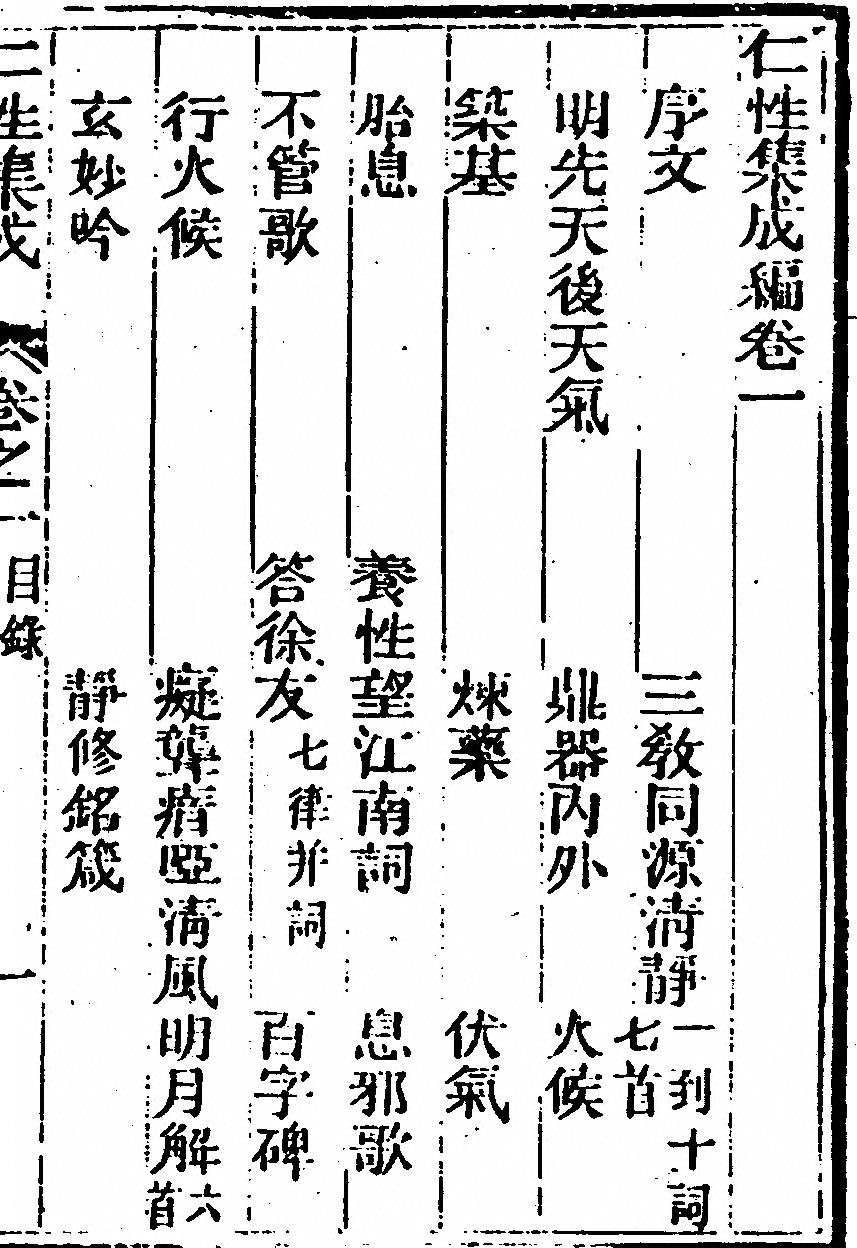 仁性集成編卷一
序文 三敎同源清靜 一到十詞 七首
明先天後天氣 鼎器內外 火候
築基 煉藥 伏氣
胎息 養性望江南詞 息邪歌
不管歌 答徐友 七律并詞 百字碑
行火候 癡聾瘖啞清風明月解 六首
玄妙吟 靜修銘箴
性集成 卷之一 目錄 一